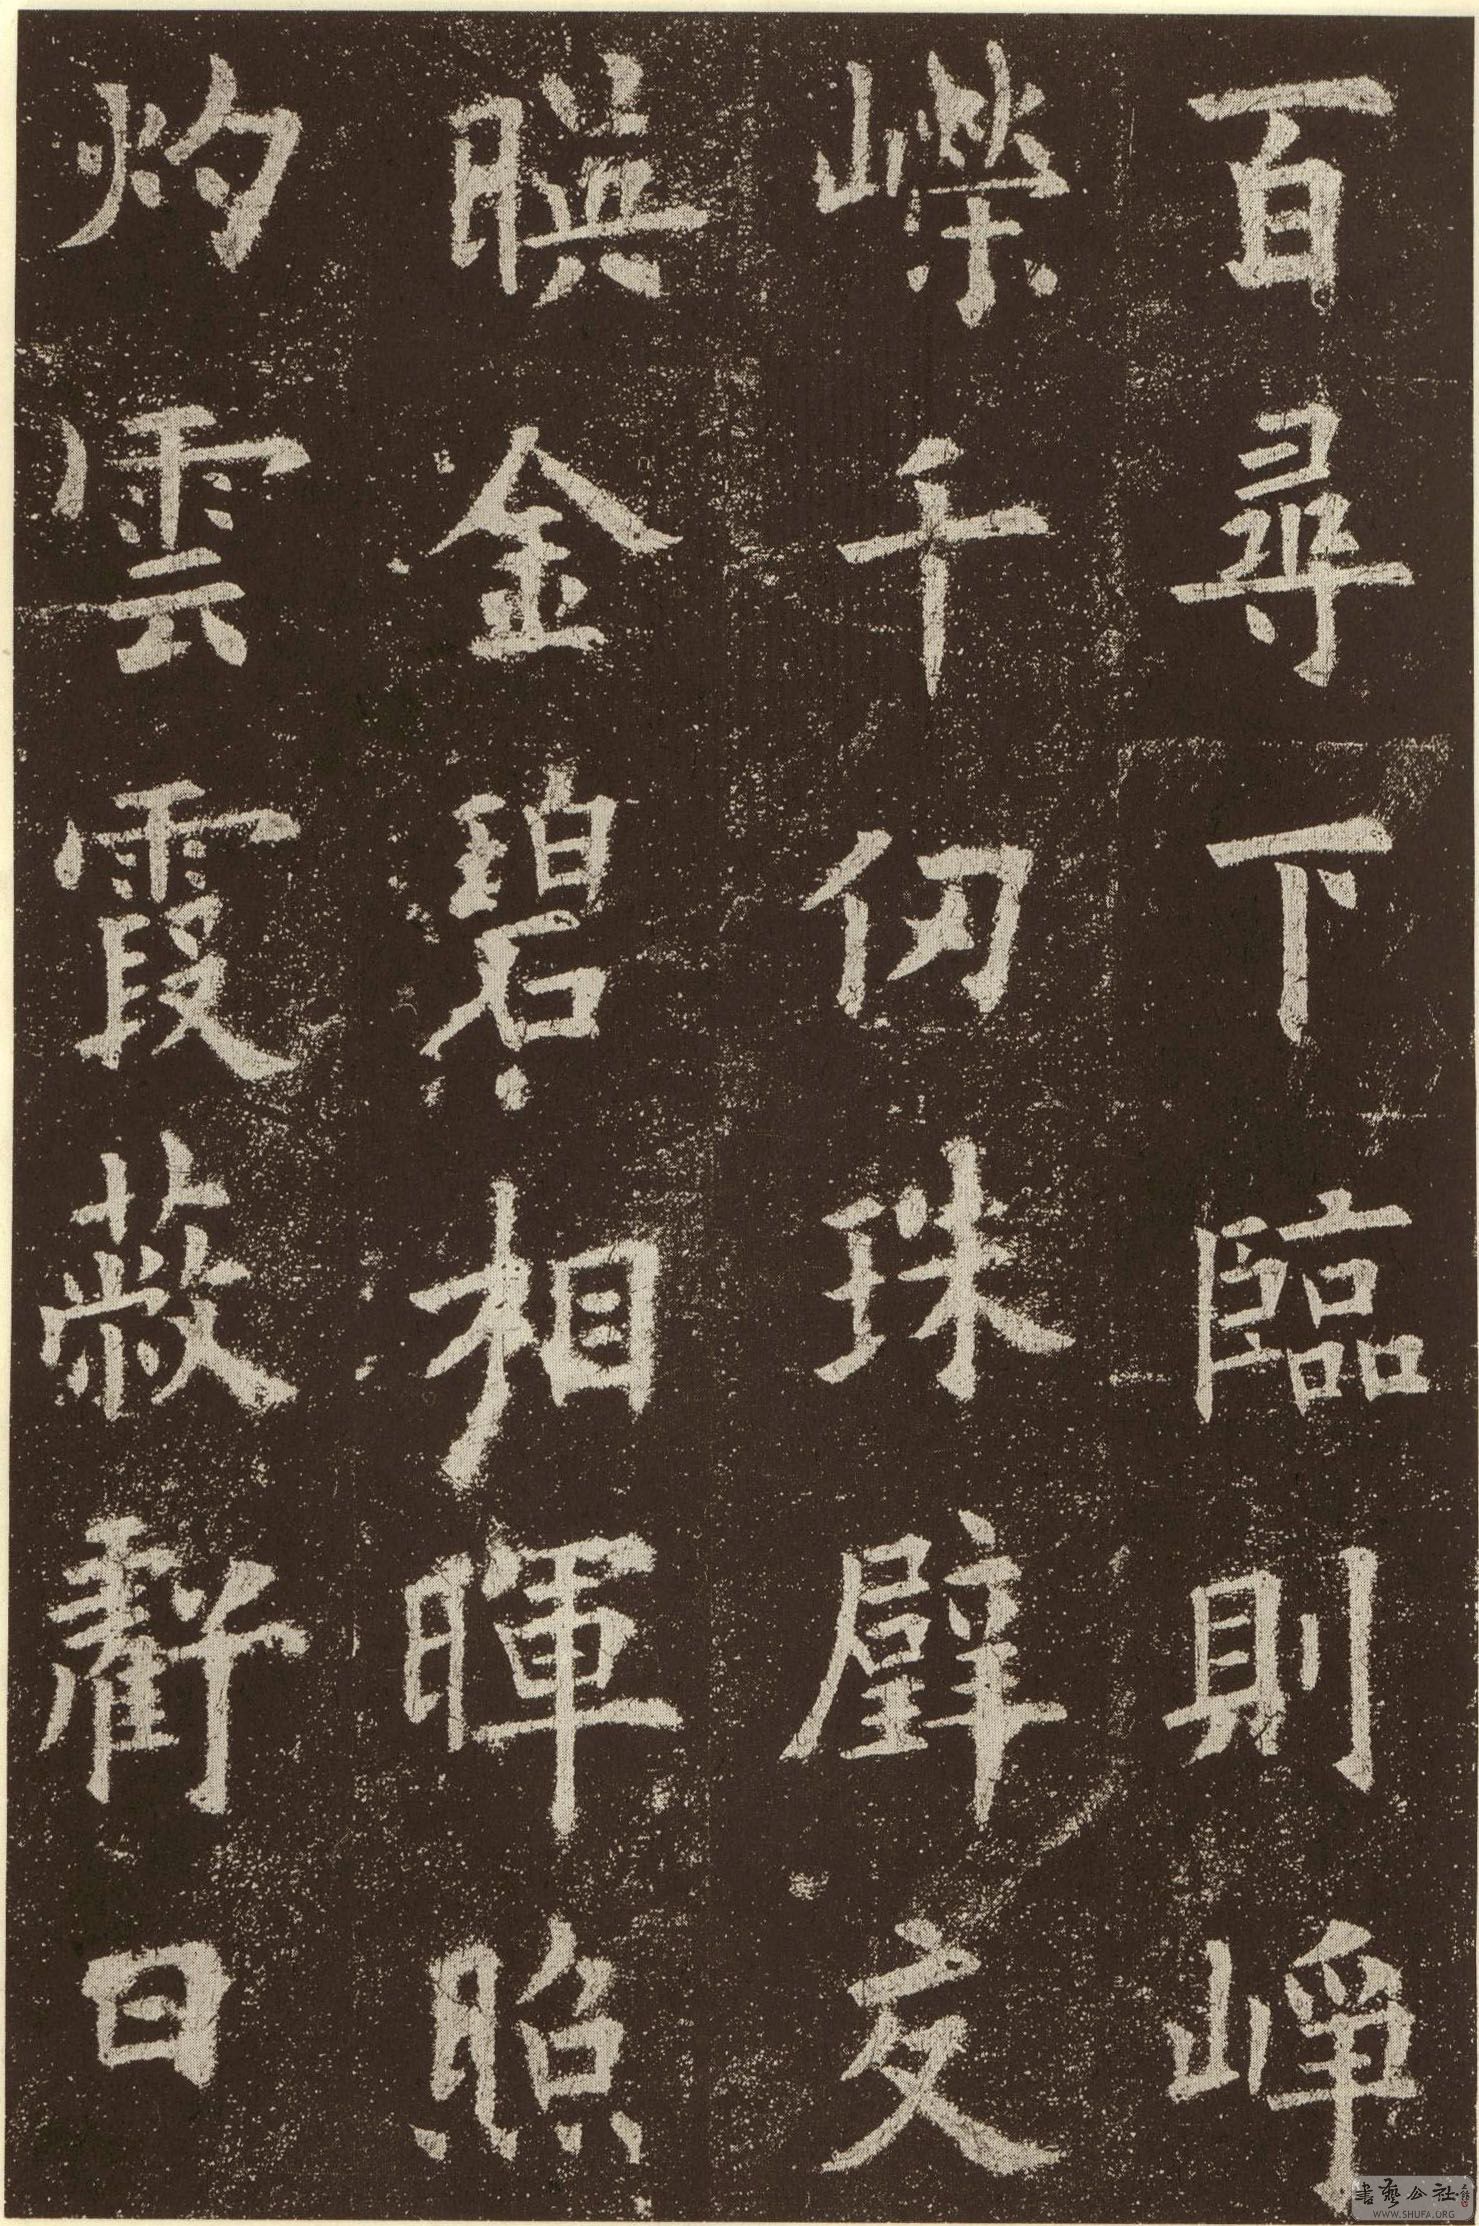 百尋下臨則崢
嶸千仞珠璧交
暎金碧相暉照
灼雲霞蔽虧日
書藝公社
WWW.SHUFA.ORG